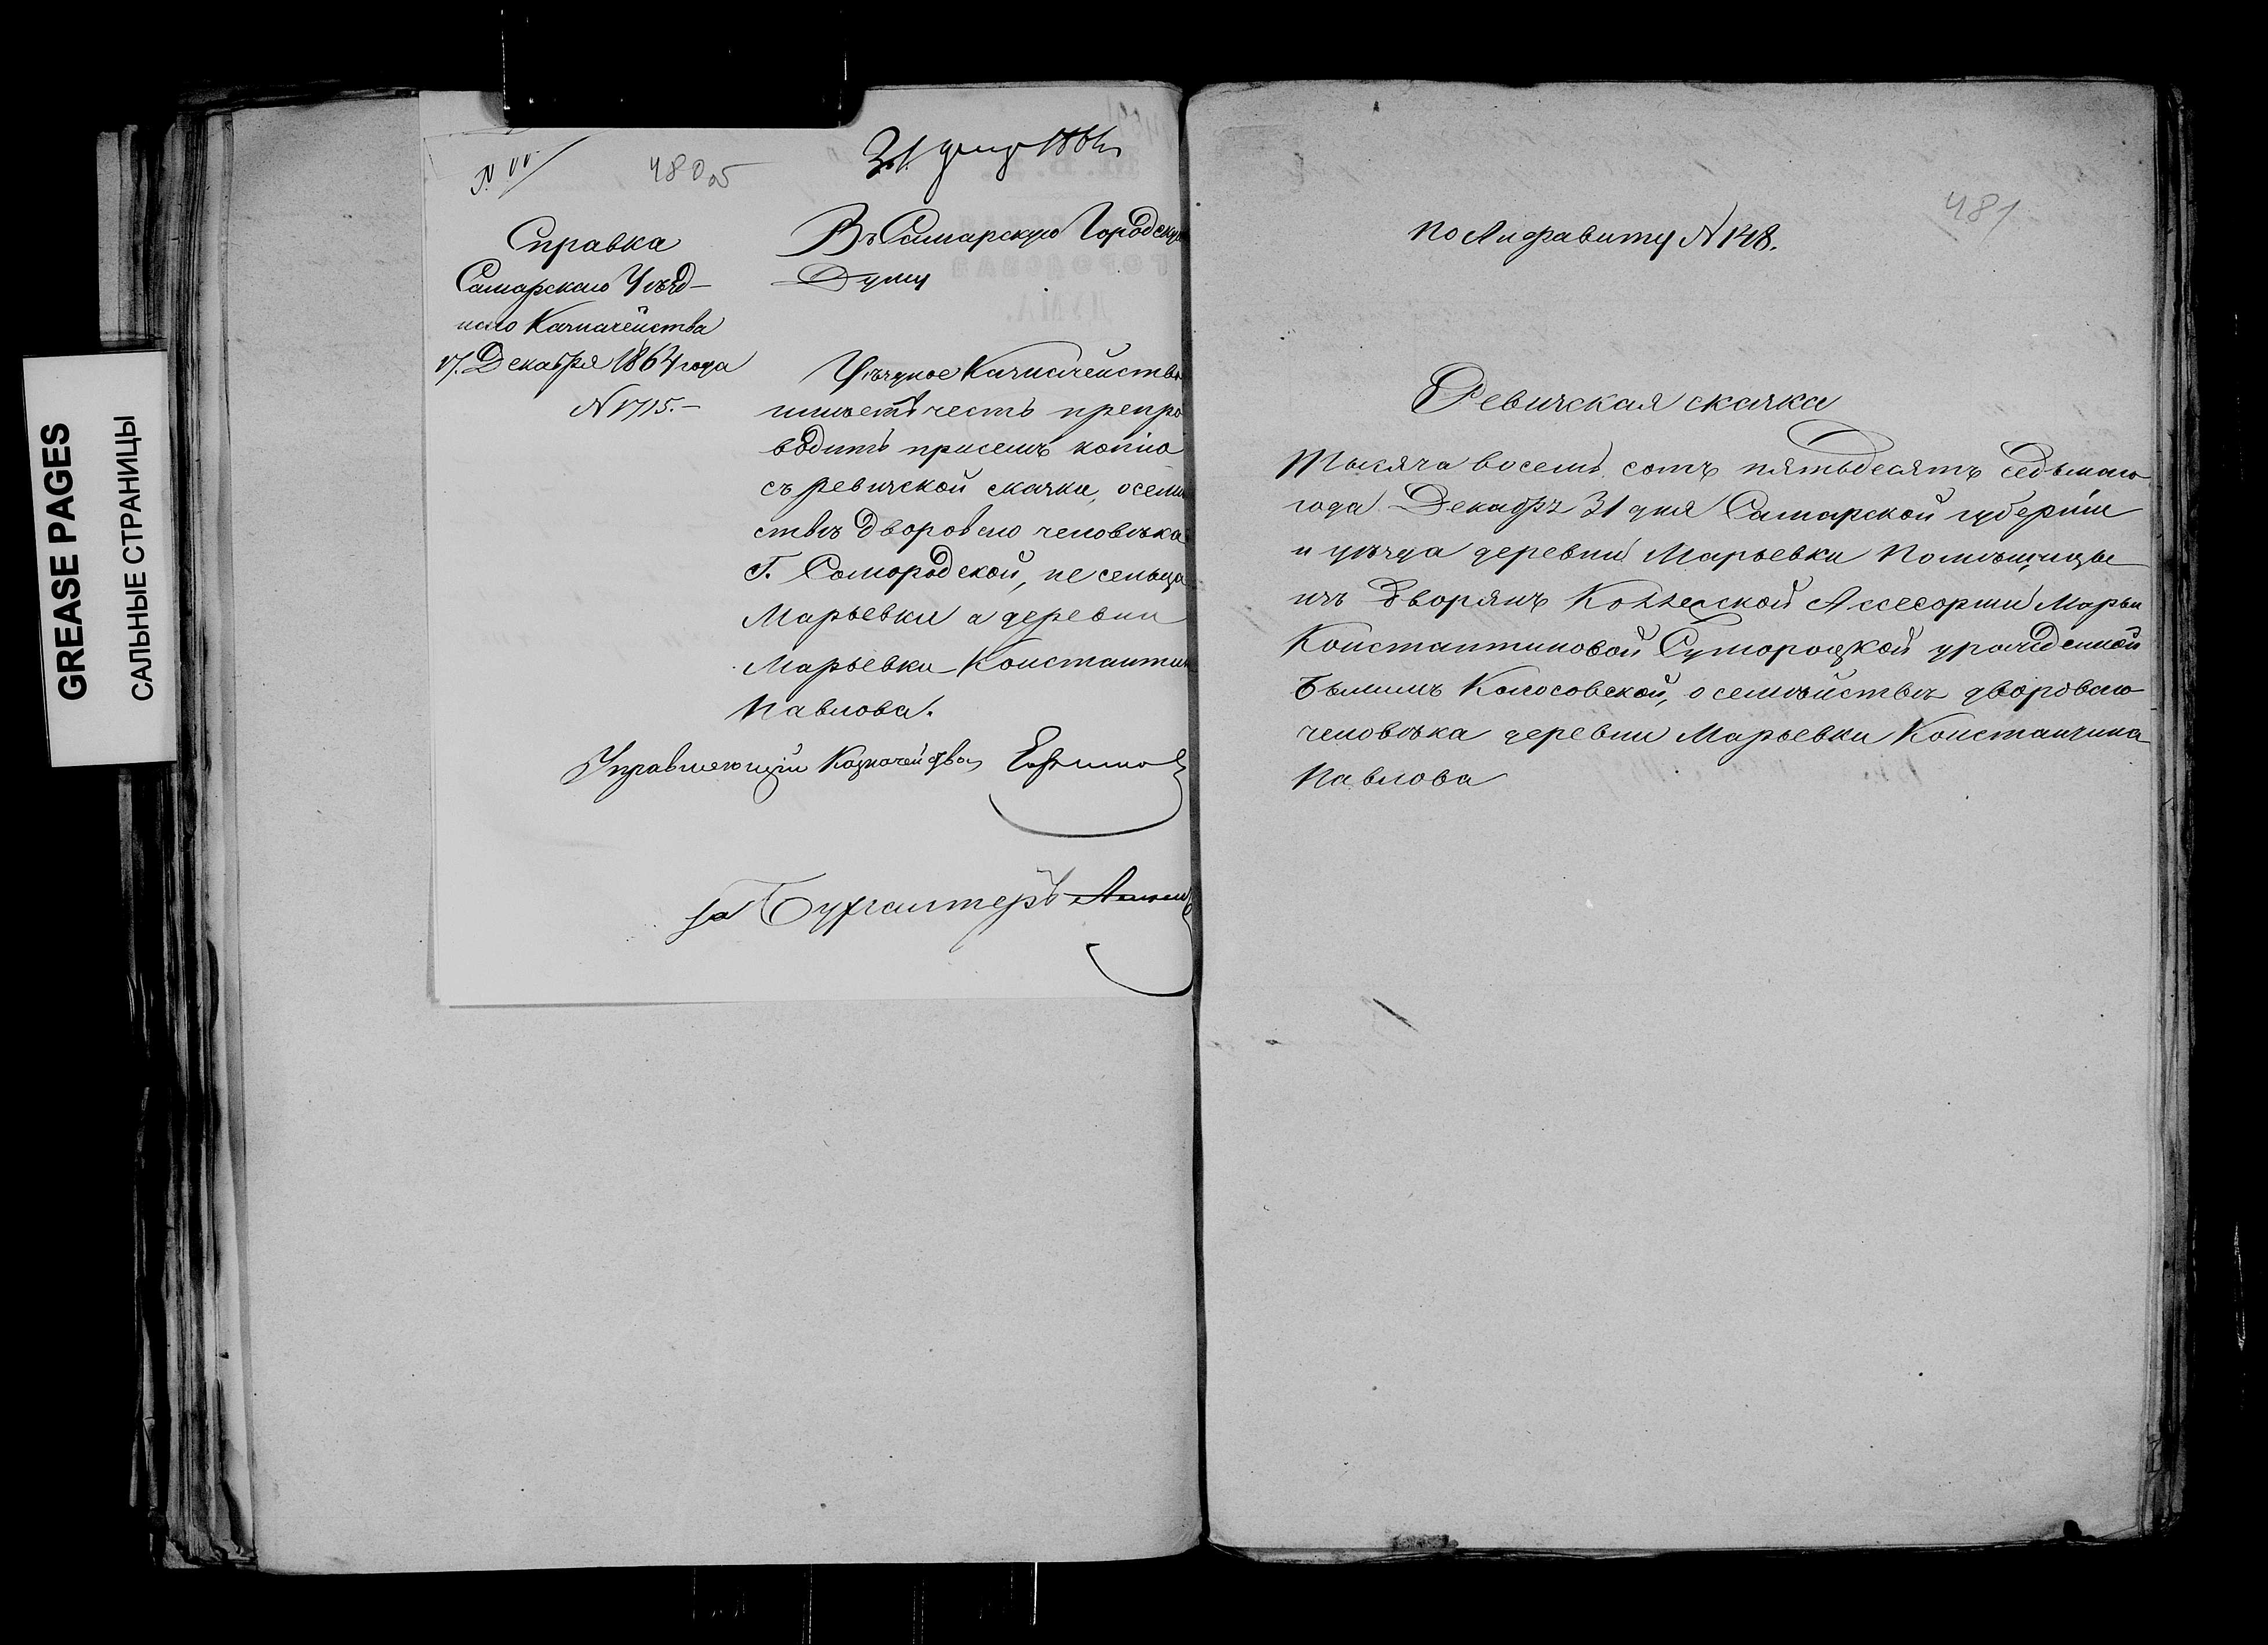 GREASE PAGES
САЛЬНЫЕ СТРАНИЦЫ
480 об
31 1864
Справка
Самарскаго Уѣзд-
наго Казначейства
17. Декабря 1864 года
N 1715.-
Въ Самарскую Городскую
Думу
Уѣздное Казначейство
имѣетъ честь препро
водить присемъ копію
съ ревизской сказки, осеми
ствѣ дворового человѣка
Г. Сомородской, не сельца
Марьевки а деревни
Марьевки Константин
Павлова.
Управляющій Казначейства Ефимов
за Бухгалтеръ
481
По Алфавиту N 148.
Ревизская сказка
Тысяча восемь сотъ пятьдесятъ седьмаго
года Декабр 31 дня Самарской губерніи
и уѣзда деревни Марьевки Помѣщицы
изъ дворянъ Коллеской Ассесорши Марьи
Константиновой Сумороцкой урожденной
Колосовской, о семѣйствѣ дворового
человѣка деревни Марьевки Константина
Павлова